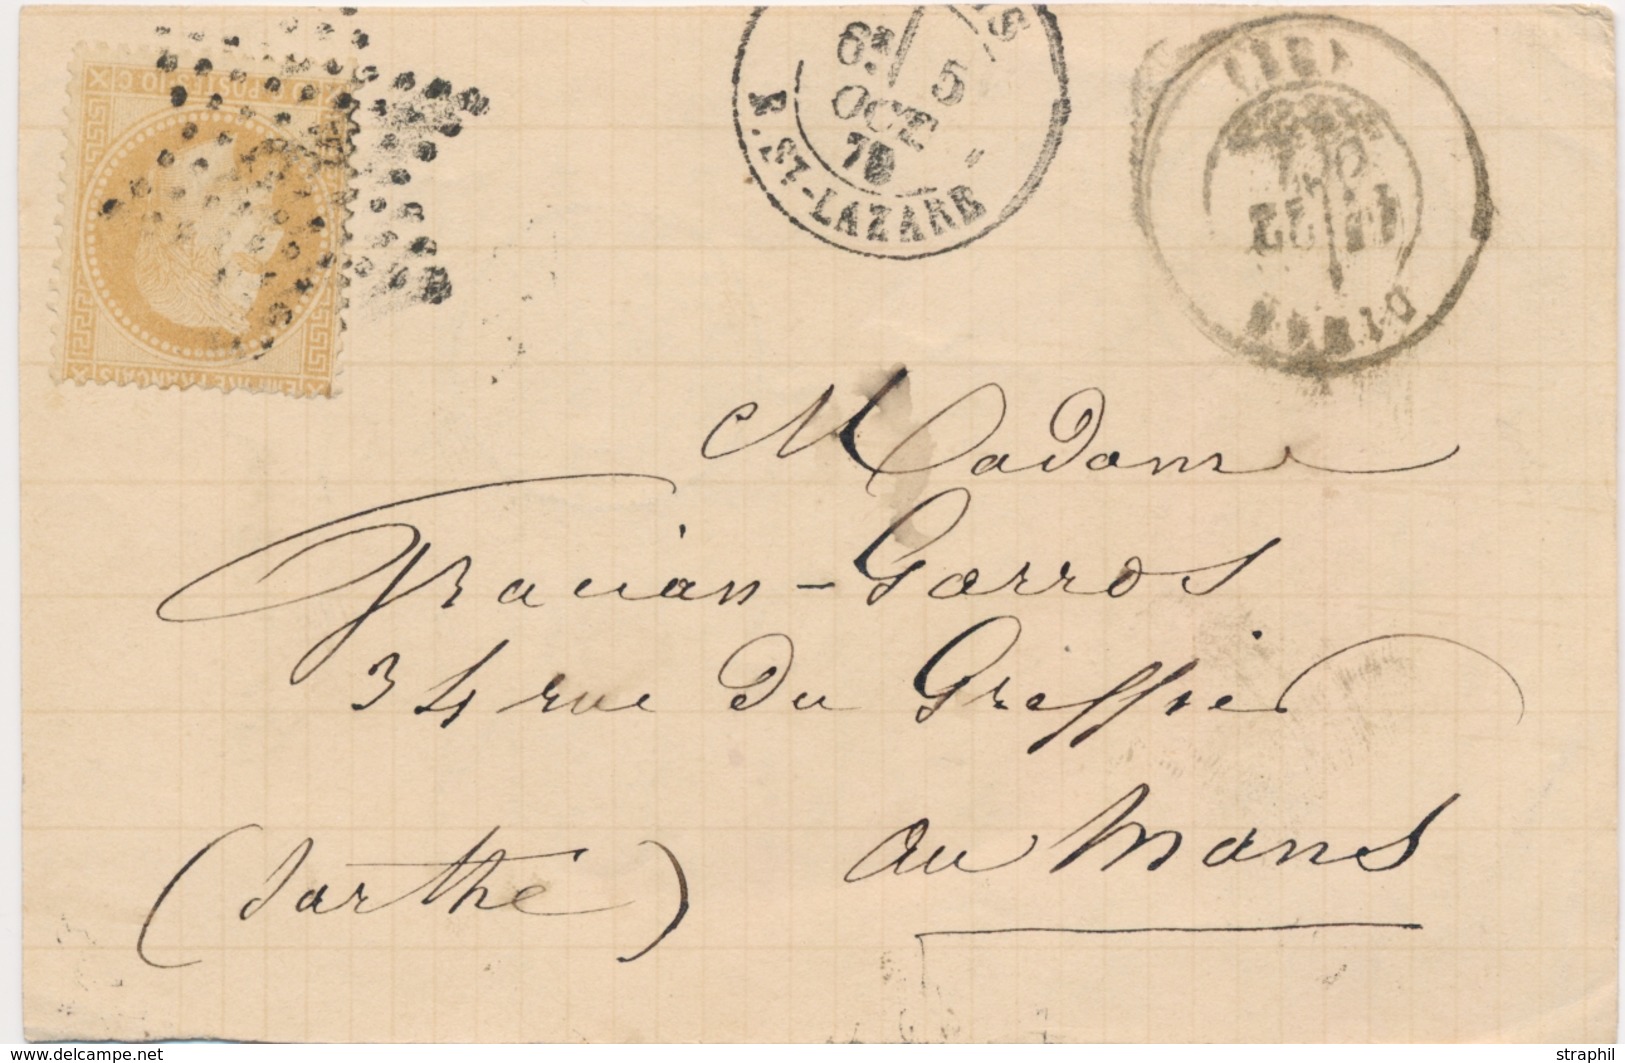 6E 5
OCT
70
R. ST-LAZARE
EMPIRE FRANCAIS
10 C POSTES 10 C
Madame
Gracian-Garros
34 rue du Greffier
au Mans
(Sarthe)
www.delcampe.net
straphil